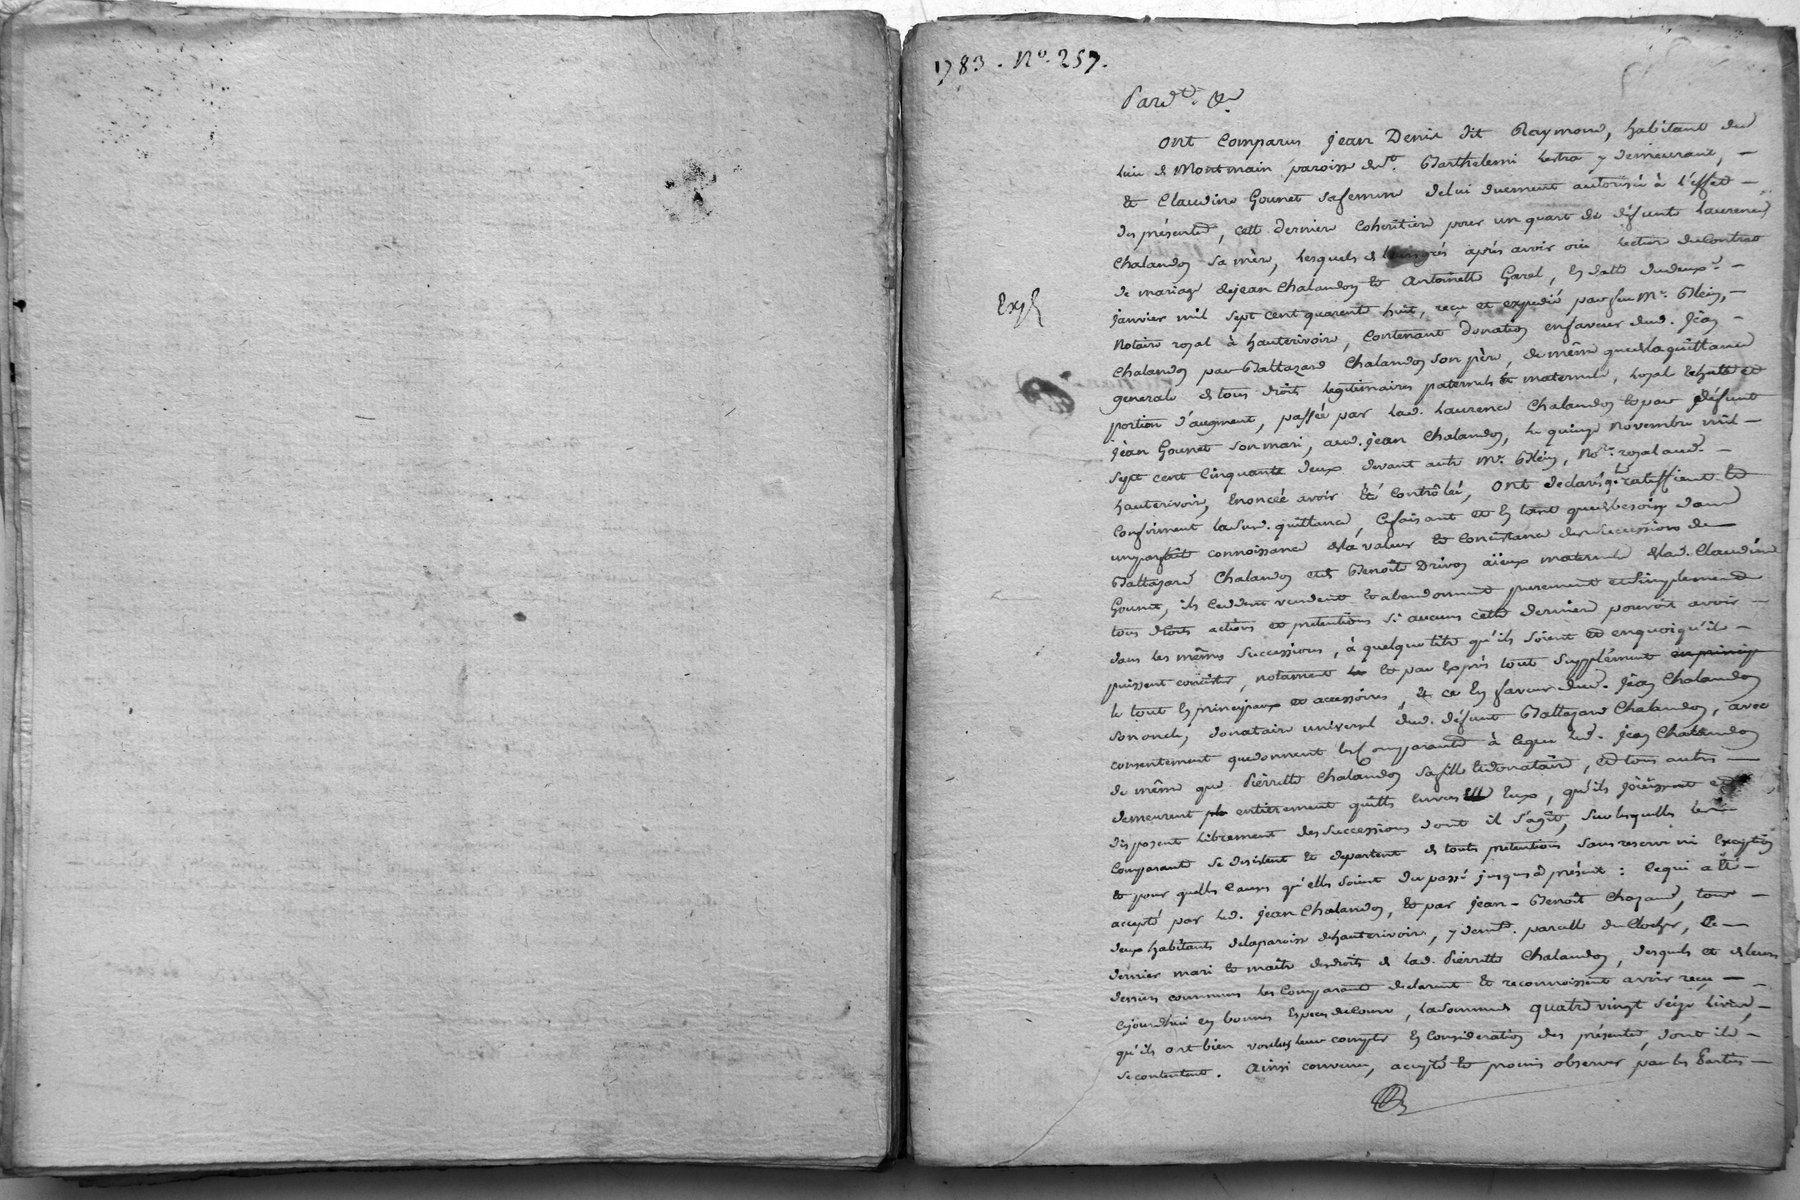 1783. N.º 257.
Pard.t &a
Ont Comparus Jean Denis dit Raymond, habitant du
lieu de Montmain paroisse de St. Barthelemi Lestra y demeurant, —
et Claudine Gounet sa femme de lui duement autorisée à l'effet —
des présentes, cette derniere Coheritiere pour un quart de défunte Laurence
Chalandon sa mère, lesquels de leurs grés après avoir oui lecture du Contrat
de mariage de Jean Chalandon et Antoinette Garel, en datte du deux.e —
Expé
janvier mil sept cent quarente huit, reçu et expedié par feu Me. —
Notaire royal à hauterivoire, Contenant donation en faveur dud. Jean —
Chalandon par Baltazard Chalandon son père, de même que de la quittance
generale de tous droits legitimaires paternels et maternels, et
portion d'augment, passée par lad. Laurence Chalandon et par défunt
jean Gounet son mari, aud. jean Chalandon, le quinze novembre mil —
sept cent Cinquante deux devant autre Me. Nore. royal aud. —
hauterivoire, Enoncée avoir Eté Contrôlée, Ont declaré q. ratiffient et
Confirment la sud. quittance, ce faisant et En tant que de besoin dans
une parfaite connoissance de la valeur et Consistance des successions de
Baltazard Chalandon et de Benoîte Drivon aïeux maternels de lad. Claudine
Gounet, ils Cedent vendent et abandonnent purement et simplement
tous droits actions et pretentions si aucuns cette derniere pouvoit avoir —
dans les mêmes successions, à quelque titre qu'ils soient et en quoi qu'ils —
puissent consister, notament et par Exprès tout supplément en princip
le tout En principaux et accessoires et ce En faveur dud. Jean Chalandon
son oncle, donataire universel dud. défunt Baltazard Chalandon, avec
consentement que donnent les Comparants à ce que led. Jean Chalandon
de même que Pierrette Chalandon sa fille et donataire, et tous autres —
demeurent entierement quittes envers Eux, qu'ils joüissent et
disposent librement des successions dont il s'agit, sur lesquelles les
Comparants se desistent et departent de toutes pretentions sans reserve ni Exception
et pour quelles Causes qu'elles soient du passé jusques à présent : ce qui a Eté —
accepté par led. jean Chalandon, et par jean-Benoît Chazaud, tous —
deux habitants de la paroisse de hauterivoire, y demts. parcelle du Clocher, Ce —
dernier mari et maitre des droits de lad. Pierrette Chalandon, desquels et de leurs
deniers communs les Comparants declarent et reconnoissent avoir reçu —
cejourdhui en bonnes Especes de Cours, la somme de quatre vingt seize livres, —
qu'ils ont bien voulus leur compter En Consideration des présentes, dont ils —
se contentent. Ainsi convenu, accepté et promis observer par les Parties —